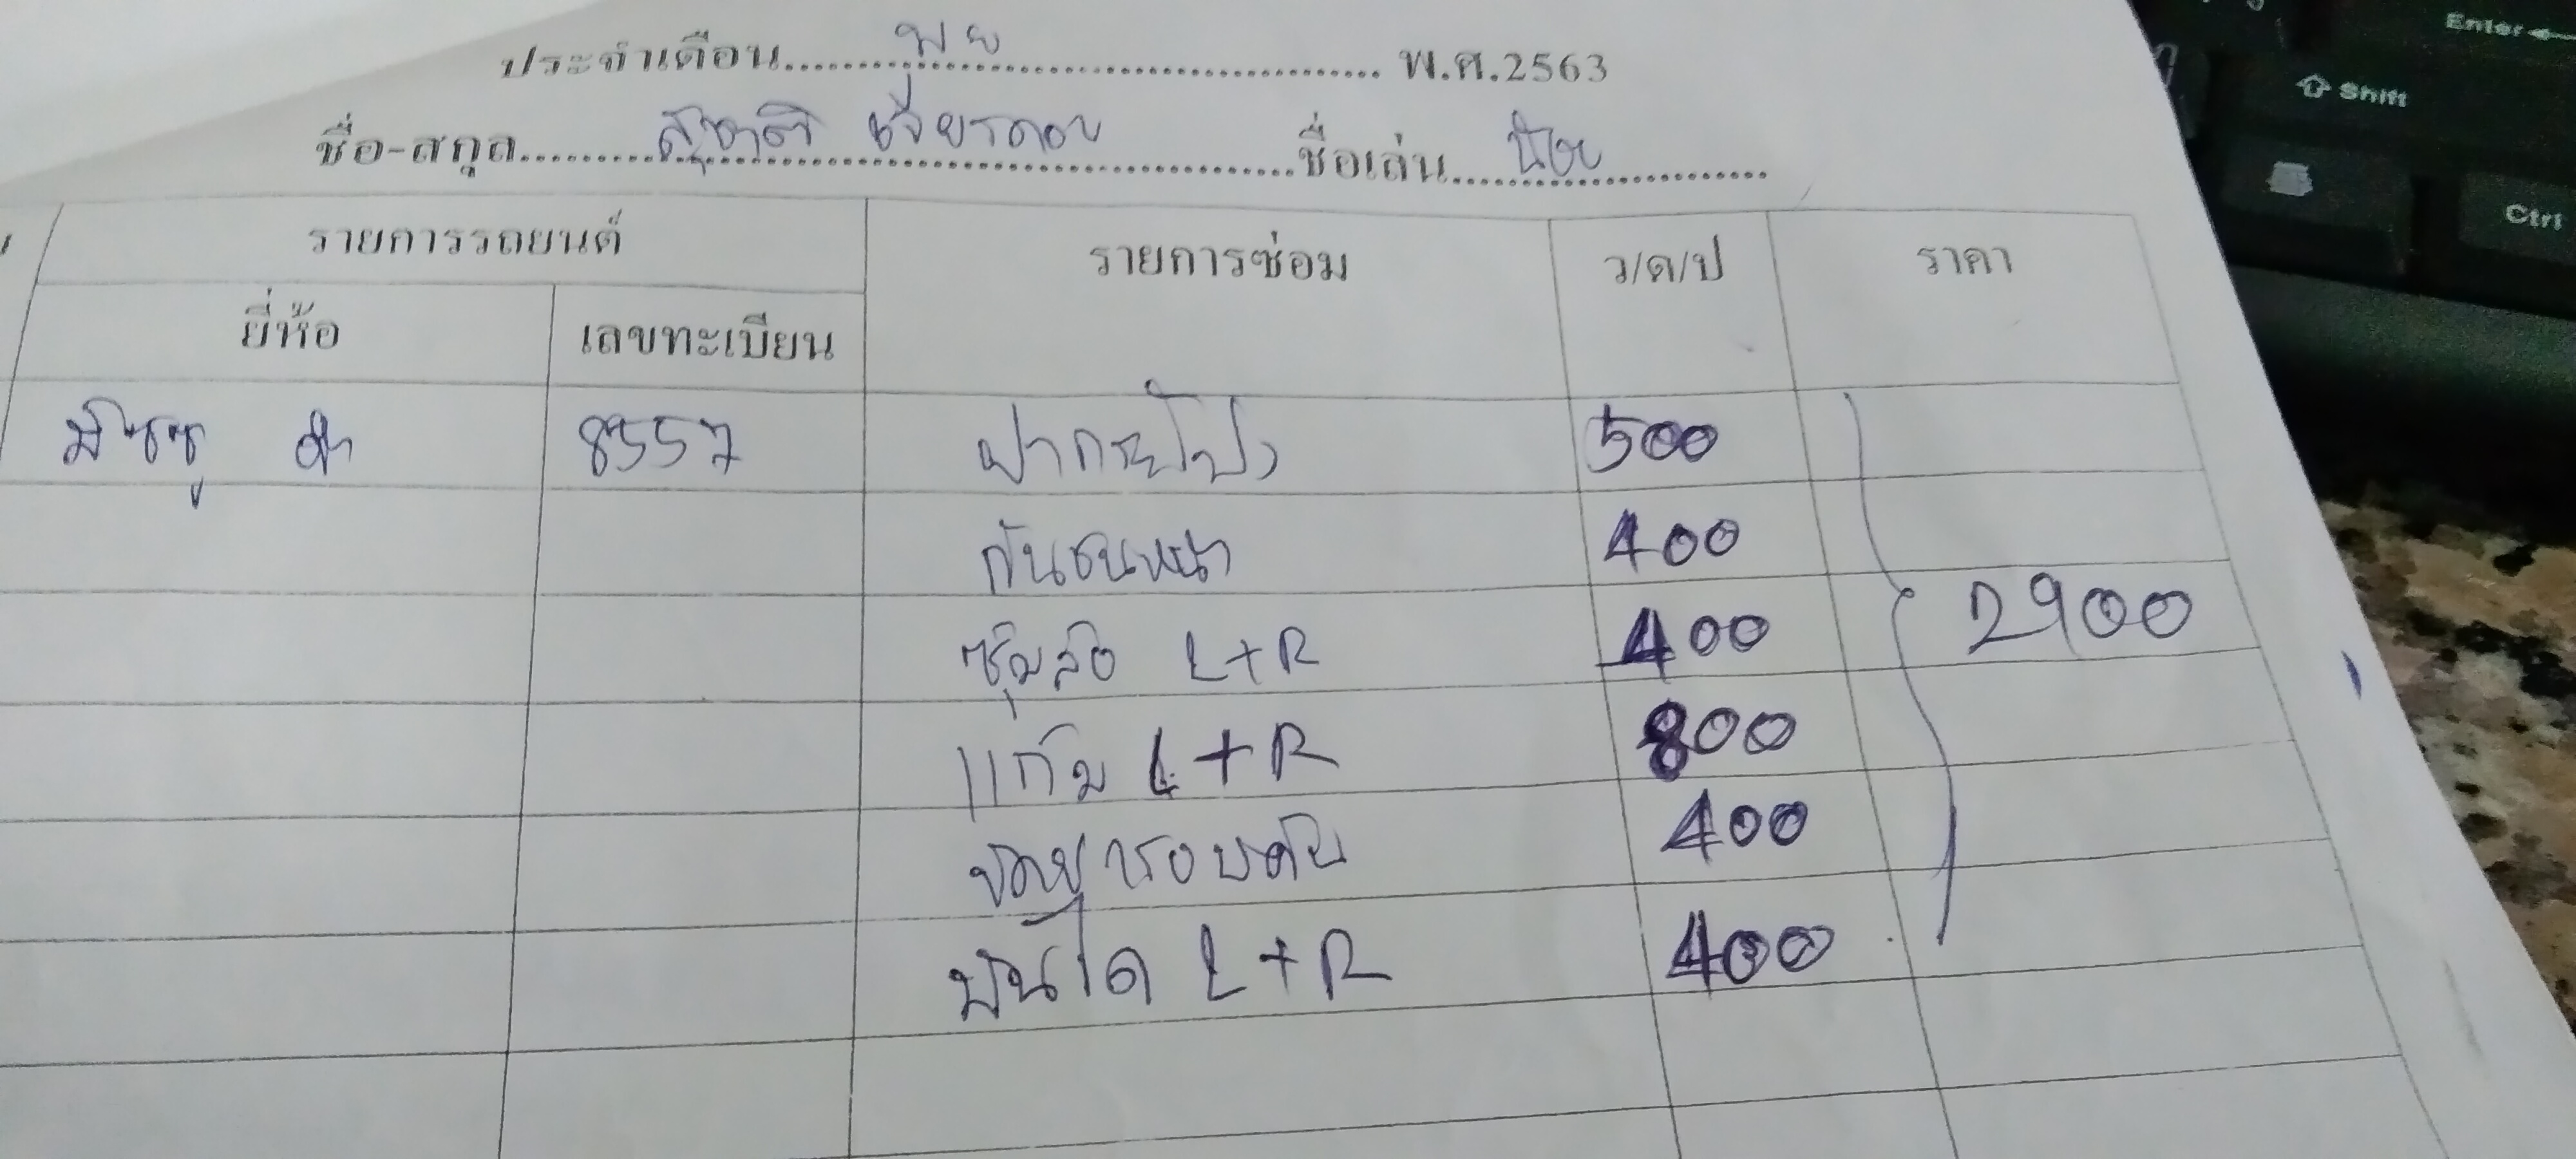 ประจำเดือน พย พ.ศ.2563
ชื่อ-สกุล สุชาติ ชื่อเล่น
รายการรถยนต์ รายการซ่อม ว/ด/ป ราคา
ยี่ห้อ เลขทะเบียน
8557 ฝากระโปรง 500
กันชนหน้า 400
ซุ้มล้อ L+R 400 2900
แก้ม L+R 800
รอบคัน 400
บันได L+R 400
Enter
Shift
Ctrl